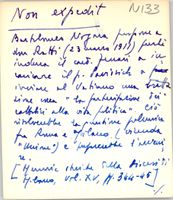 Non expedit
N133
Bartolomeo Nogara propone a
don Ratti (23 marzo 1911) perché
induca il card. Ferrari a in
caricare il p.
inviare al Vaticano una
zione su "La partecipazione dei
cattolici alla vita politica". Ciò
risolverebbe la questione polemica
fra Roma e Milano (vicenda
"Unione") e
re
[Memorie storiche della Diocesi di
Milano, vol. XV, pp. 344-45]